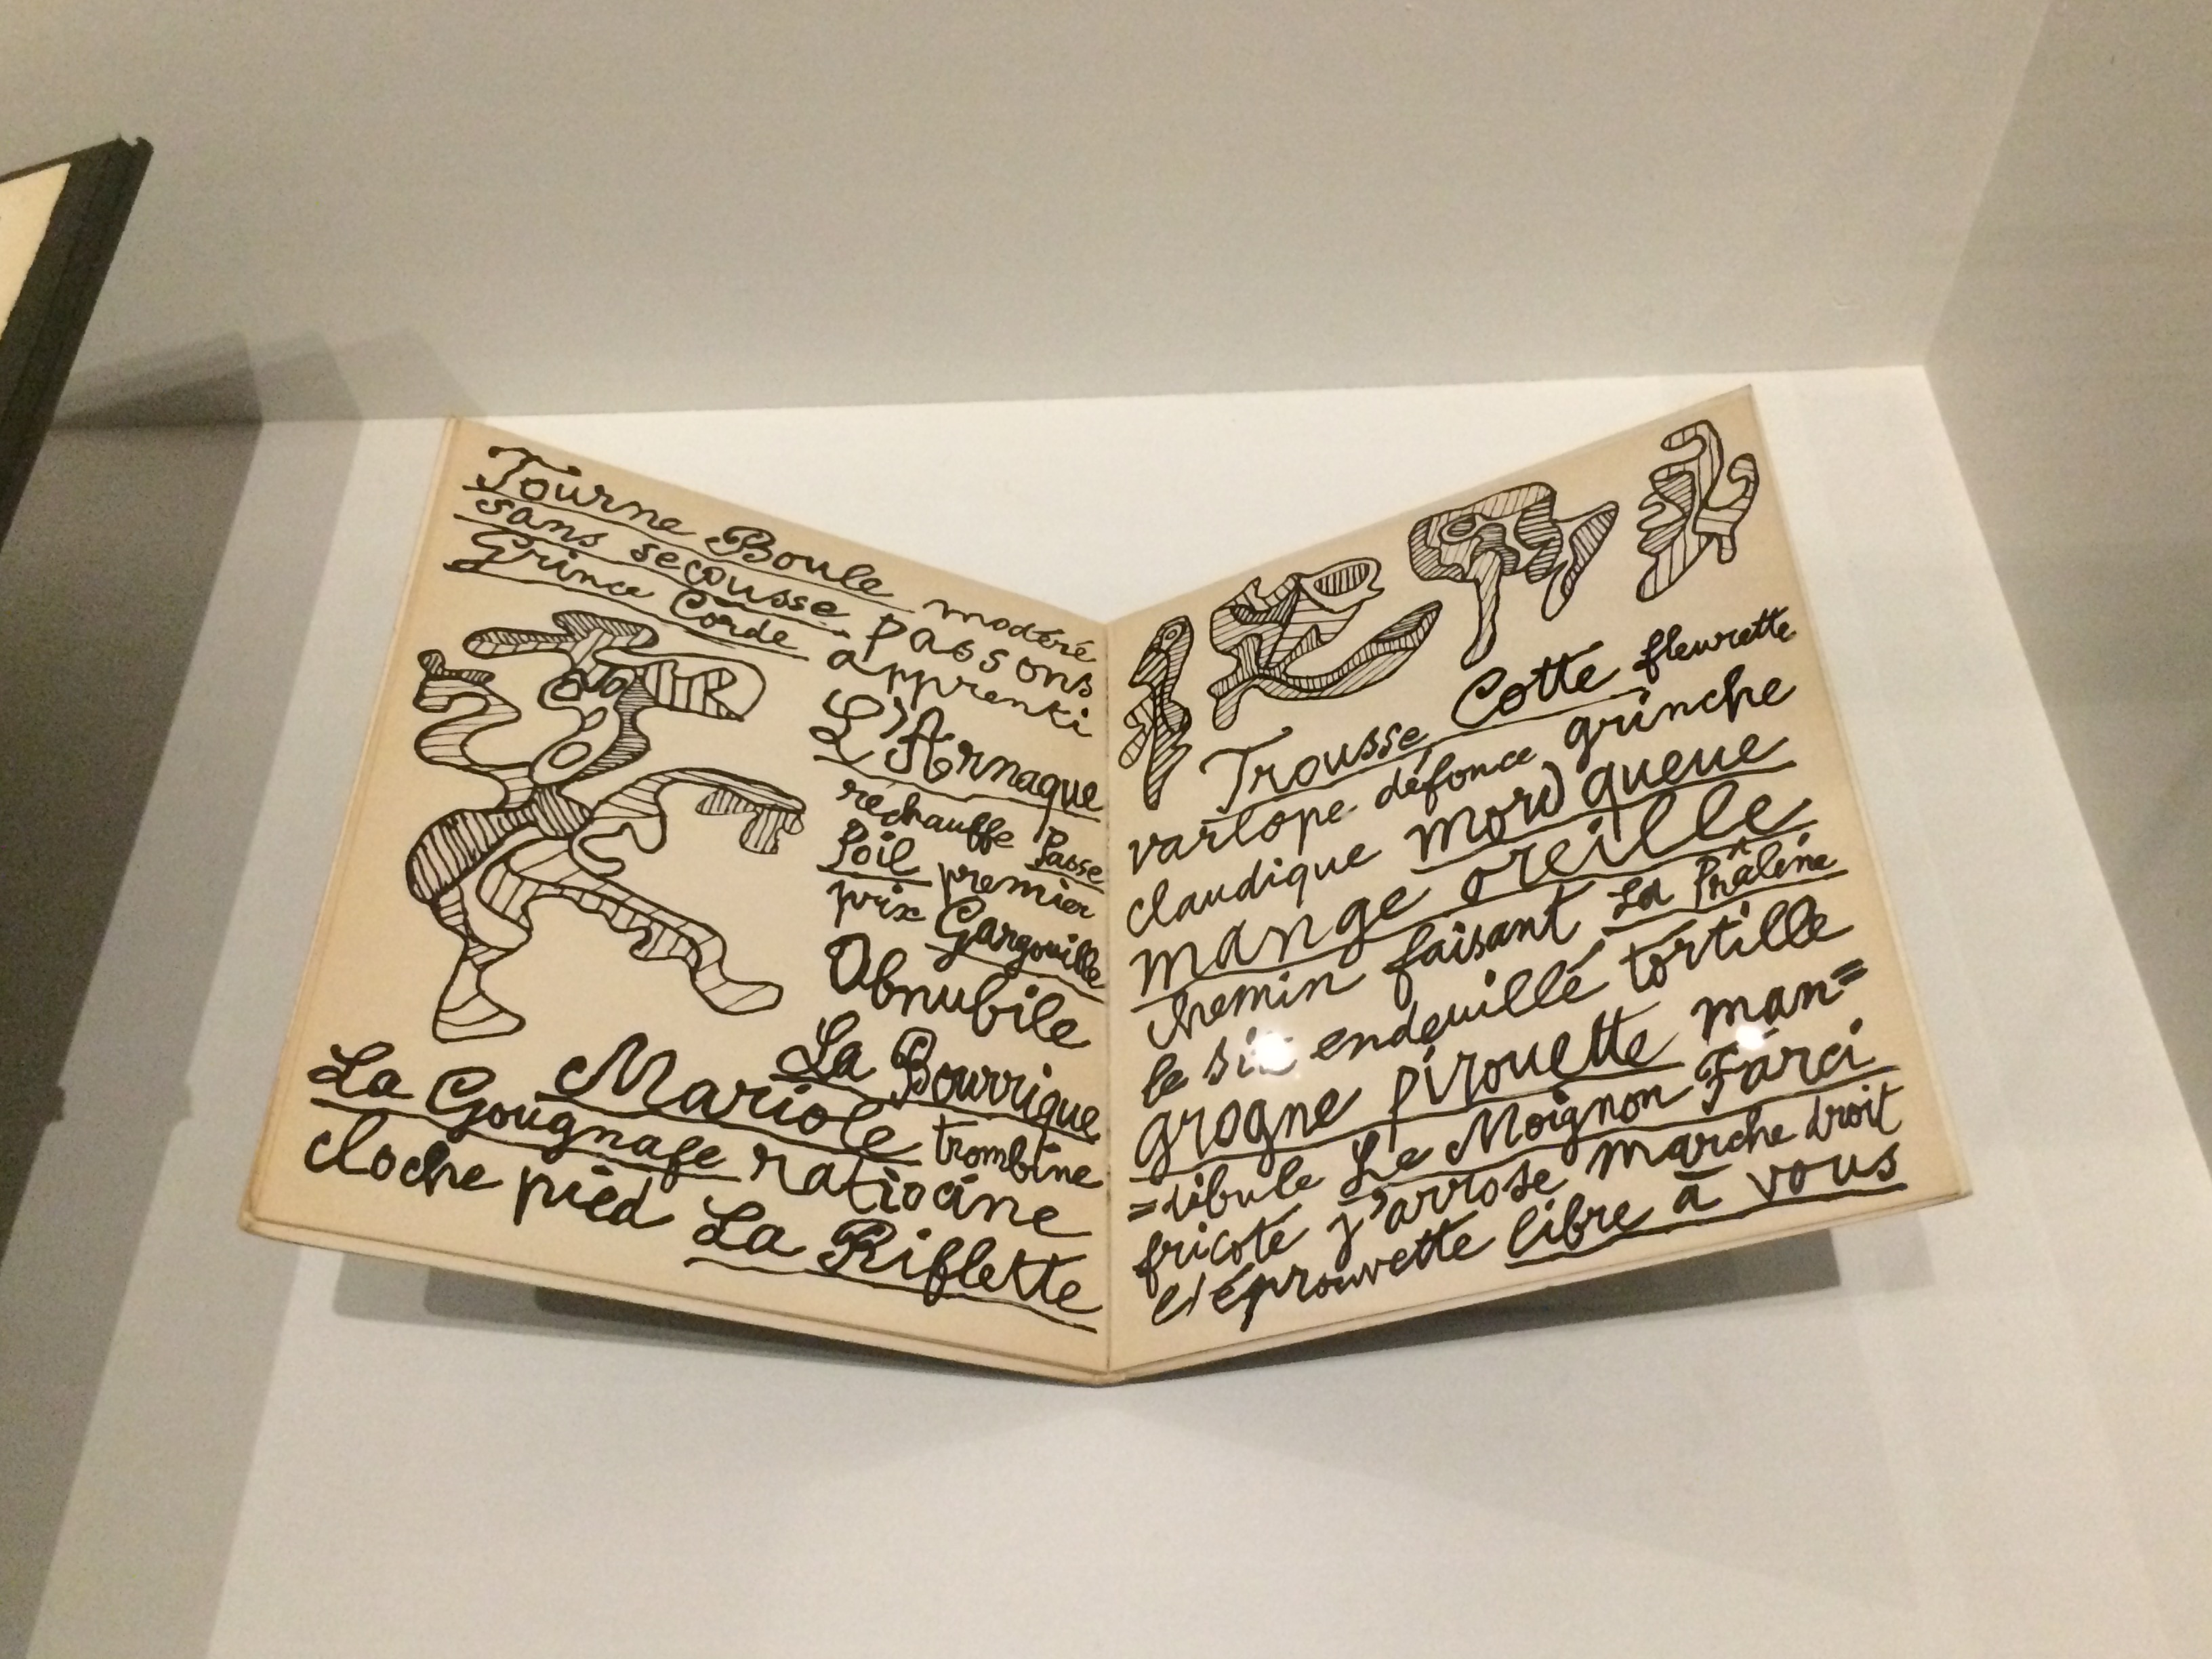 Tourne Boule modéré
sans secousse passons
Grince Corde apprenti
L'Arnaque
réchauffe Passe
Poil premier
prix Gargouille
Obnubile
La Bourrique
Mariole trombine
La Gougnafe ratiocine
cloche pied La Riflette
Trousse Cotte fleurette
varlope défonce grinche
claudique mord queue
mange oreille
chemin faisant La Prâline
le six endeuillé tortille
grogne pirouette man=
=dibule Le Moignon Farci
fricote j'arrose marche droit
l'éprouvette libre à vous